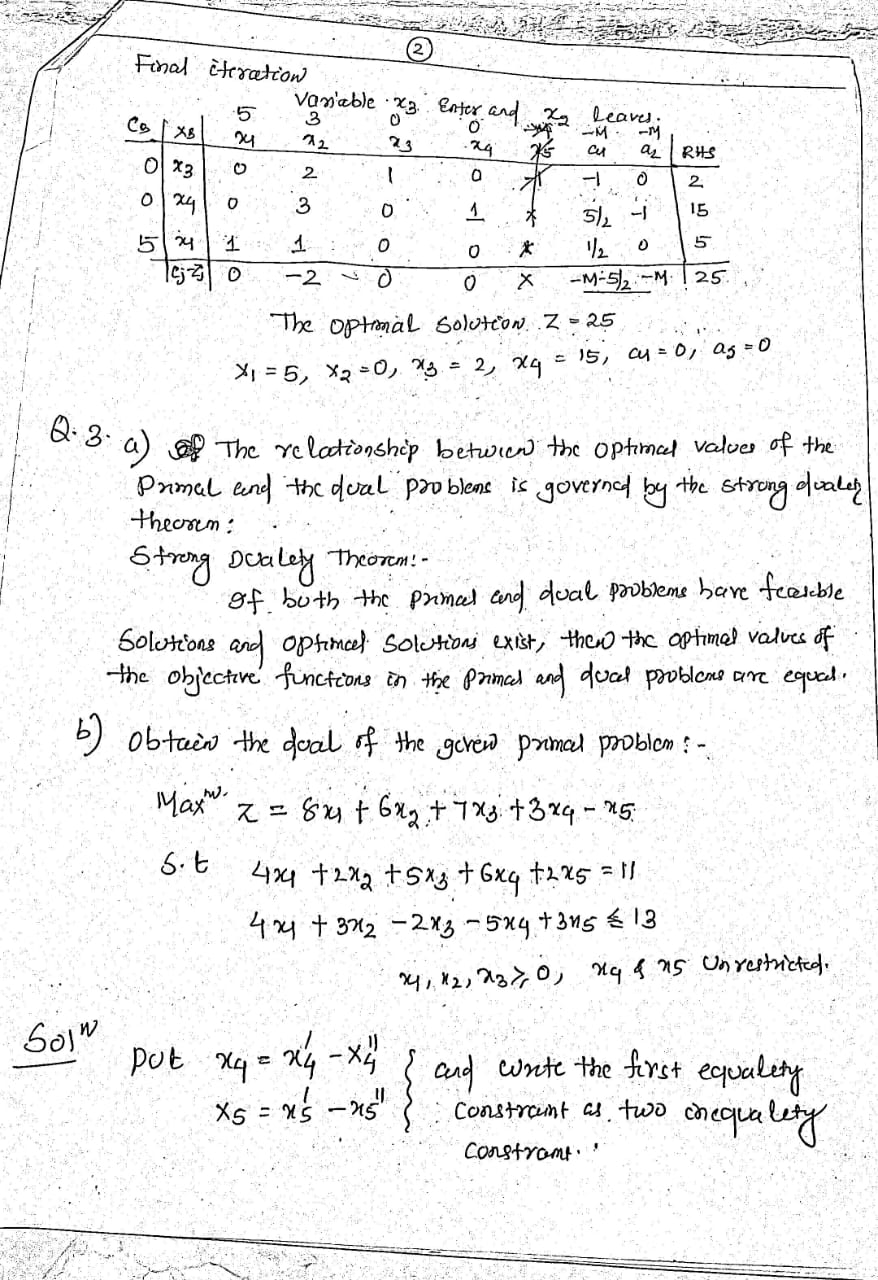 2
Final iteration
Variable x3 Enter and x2 leaves.
5 3 0 0 -M -M
CB XB x1 x2 x3 x4 x5 a1 a2 RHS
0 x3 0 2 1 0 -1 0 2
0 x4 0 3 0 1 5/2 -1 15
5 x1 1 1 0 0 1/2 0 5
Cj-Zj 0 -2 0 0 X -M-5/2 -M 25
The optimal Solution Z = 25
X1 = 5, X2 = 0, x3 = 2, x4 = 15, a1 = 0, a5 = 0
Q.3. a) The relationship between the optimal values of the
Primal and the dual problems is governed by the strong duality
theorem:
Strong Duality Theorem:-
If both the primal and dual problems have feasible
Solutions and optimal Solutions exist, then the optimal values of
the objective functions in the Primal and dual problems are equal.
b) Obtain the dual of the given primal problem :-
Maxm. Z = 8x1 + 6x2 + 7x3 + 3x4 - x5
S.t 4x1 + 2x2 + 5x3 + 6x4 + 2x5 = 11
4x1 + 3x2 - 2x3 - 5x4 + 3x5 ≤ 13
x1, x2, x3 ≥ 0, x4 & x5 Unrestricted.
Soln
put x4 = x4' - x4'' } and write the first equality
X5 = x5' - x5'' } Constraint as two inequality
Constraint.